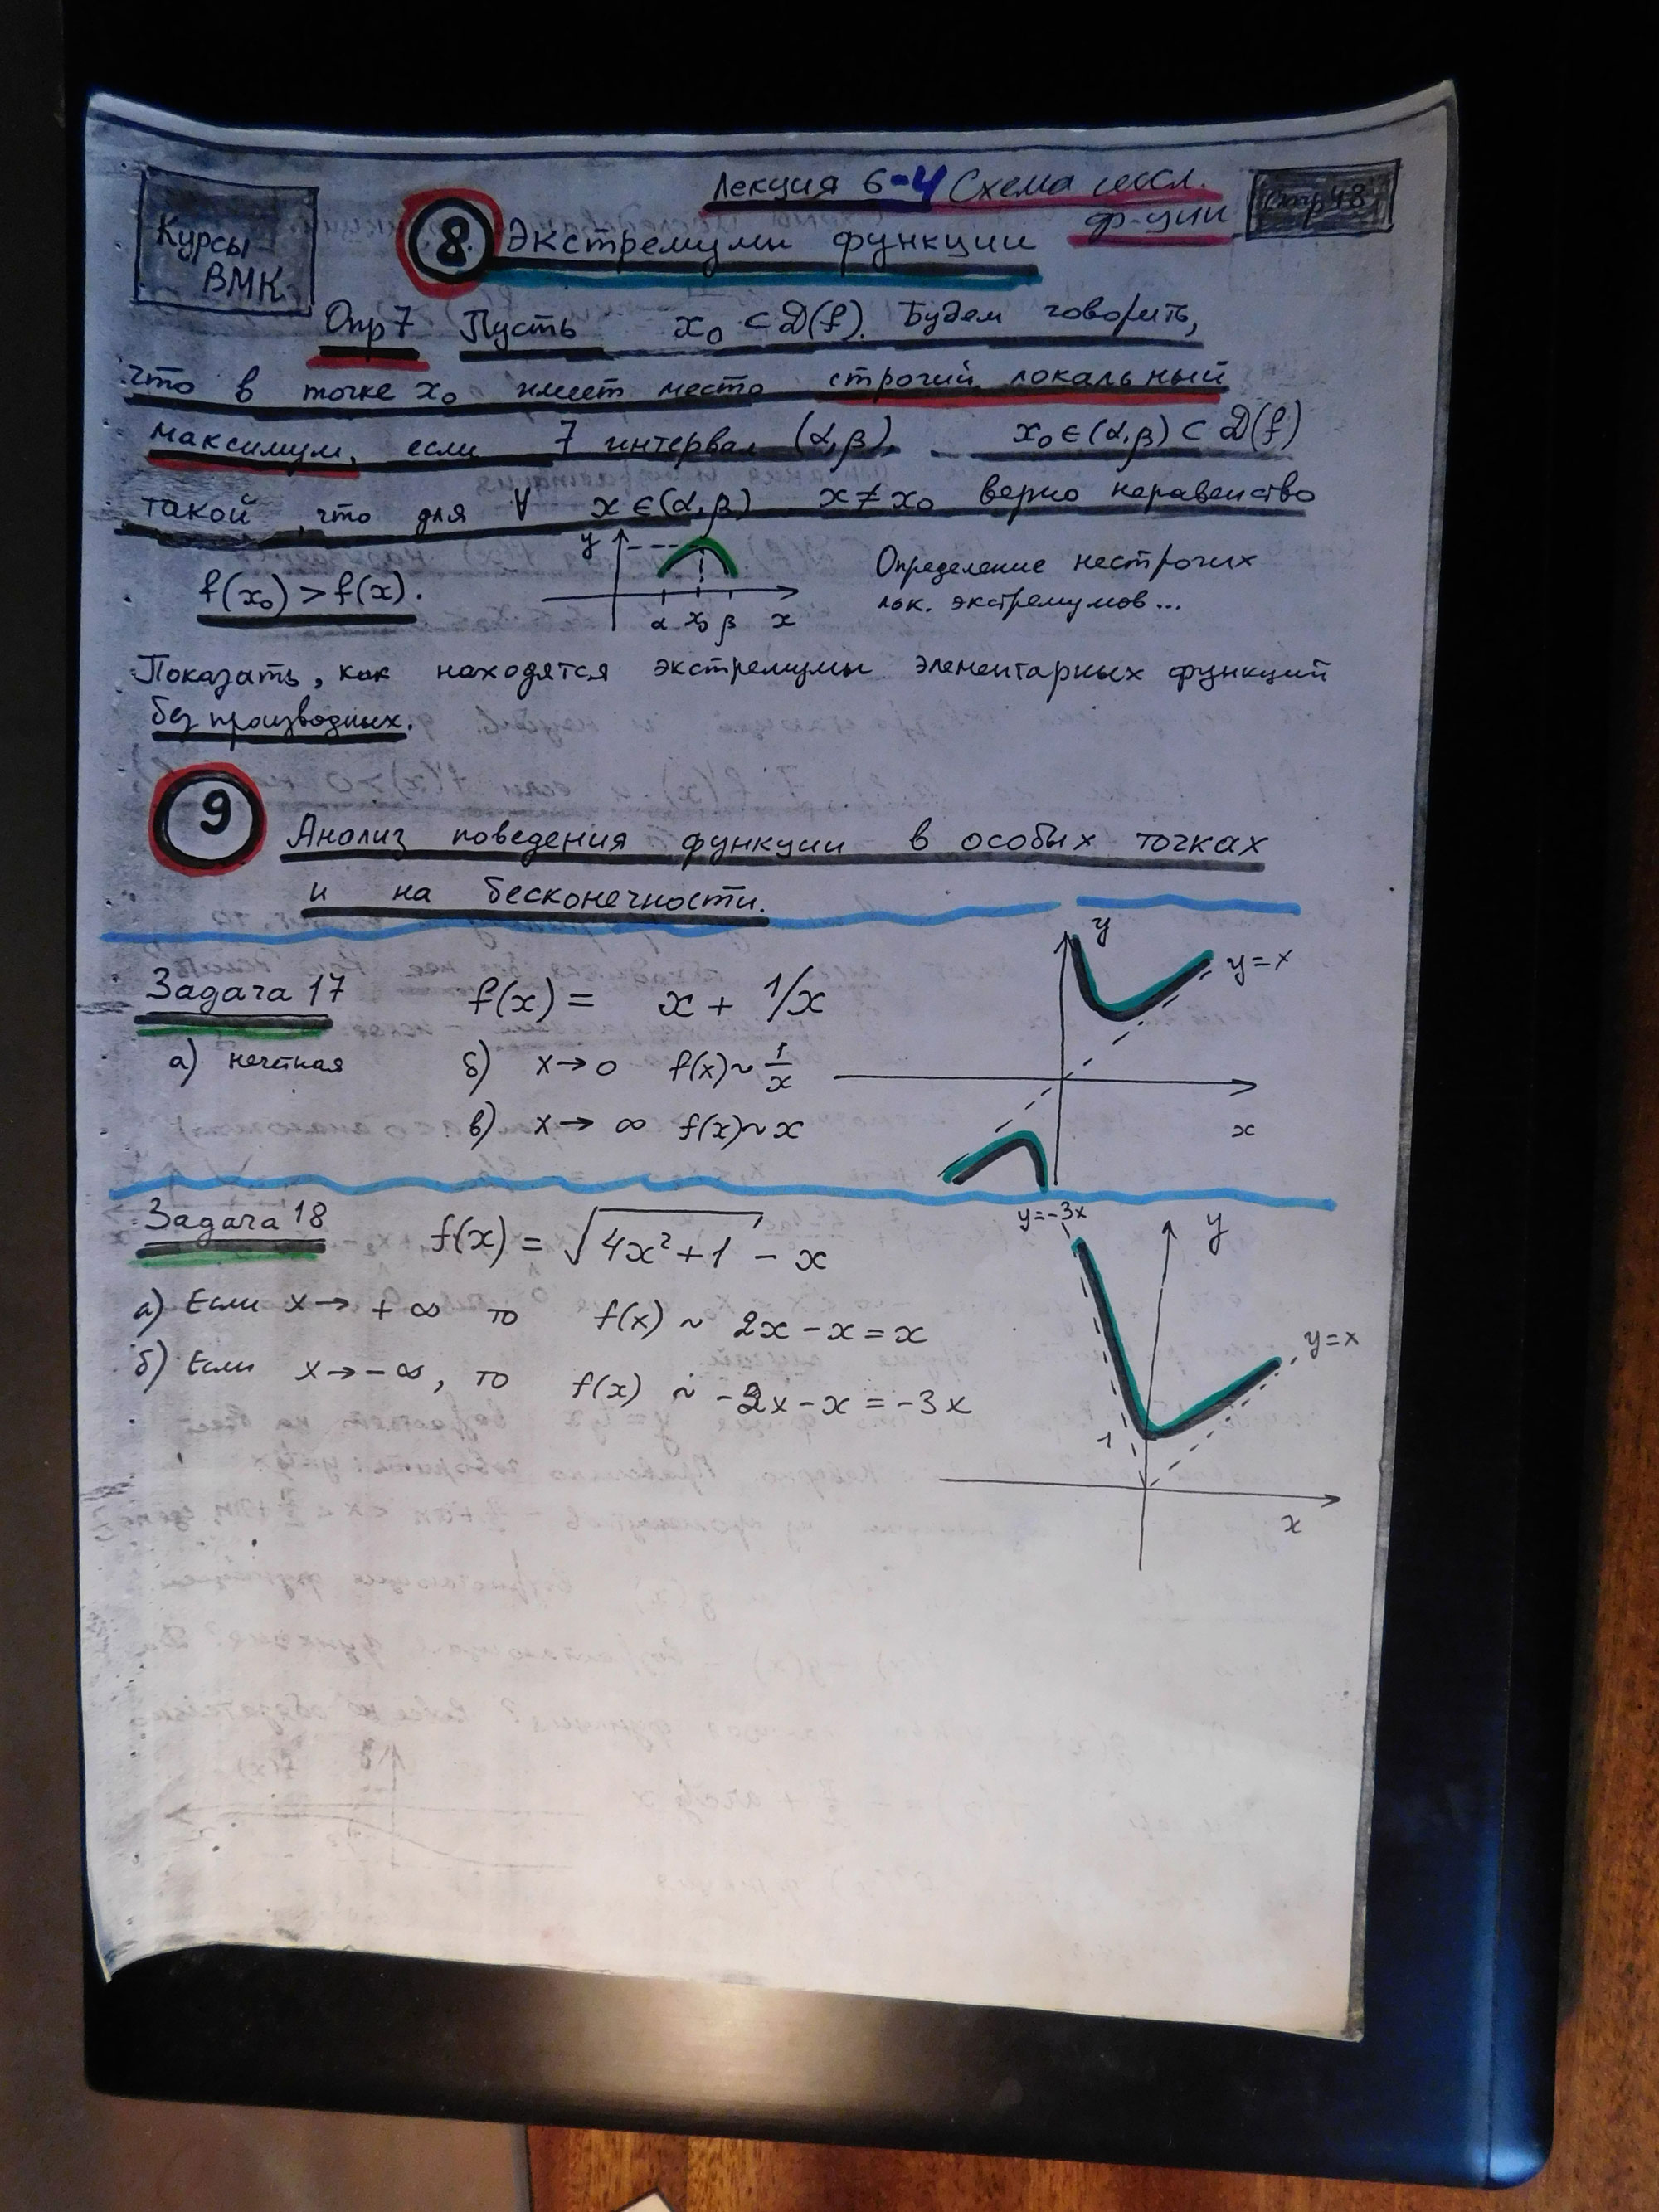 Лекция 6-4 Схема иссл.
ф-ции
Стр 48
Курсы
ВМК
8 Экстремумы функции
Опр 7 Пусть x₀ ⊂ D(f). Будем говорить,
что в точке x₀ имеет место строгий локальный
максимум, если ∃ интервал (α,β), x₀ ∈ (α,β) ⊂ D(f)
такой, что для ∀ x ∈ (α,β) x ≠ x₀ верно неравенство
f(x₀) > f(x).
y
α x₀ β x
Определение нестрогих
лок. экстремумов...
Показать, как находятся экстремумы элементарных функций
без производных.
9
Анализ поведения функции в особых точках
и на бесконечности.
Задача 17 f(x) = x + 1/x
y
y=x
а) нечетная б) x→0 f(x)~1/x
в) x→ ∞ f(x)~x
x
Задача 18 f(x) = √(4x²+1) - x
y=-3x
y
а) Если x→ +∞ то f(x) ~ 2x-x=x
y=x
б) Если x→-∞, то f(x) ~ -2x-x=-3x
1
x